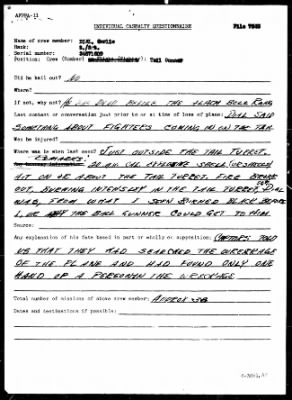 AFPPA-11
INDIVIDUAL CASUALTY QUESTIONNAIRE
File 7552
Name of crew member: DIAL, Emile
Rank: S/Sgt.
Serial number: 34571029
Position: Crew Tail Gunner
Did he bail out? NO
Where?
If not, why not? HE WAS DEAD BEFORE THE ALARM BELL RANG
Last contact or conversation just prior to or at time of loss of plane: DIAL SAID
SOMETHING ABOUT FIGHTERS COMING IN ON THE TAIL
Was he injured?
Where was he when last seen? JUST OUTSIDE THE TAIL TURRET.
REMARKS: 20 M.M. CAL EXPLOSIVE SHELL (OR SHELLS)
HIT ON OR ABOUT THE TAIL TURRET. FIRE BROKE
OUT, BURNING INTENSELY IN THE TAIL TURRET. SGT DIAL
WAS, FROM WHAT I SEEN BURNED BLACK BEFORE
I, OR THE BALL GUNNER COULD GET TO HIM.
Source:
Any explanation of his fate based in part or wholly on supposition: CAPTORS TOLD
US THAT THEY HAD SEARCHED THE WRECKAGE
OF THE PLANE AND HAD FOUND ONLY ONE
HAND OF A PERSON IN THE WRECKAGE
Total number of missions of above crew member: APPROX 30
Dates and destinations if possible: